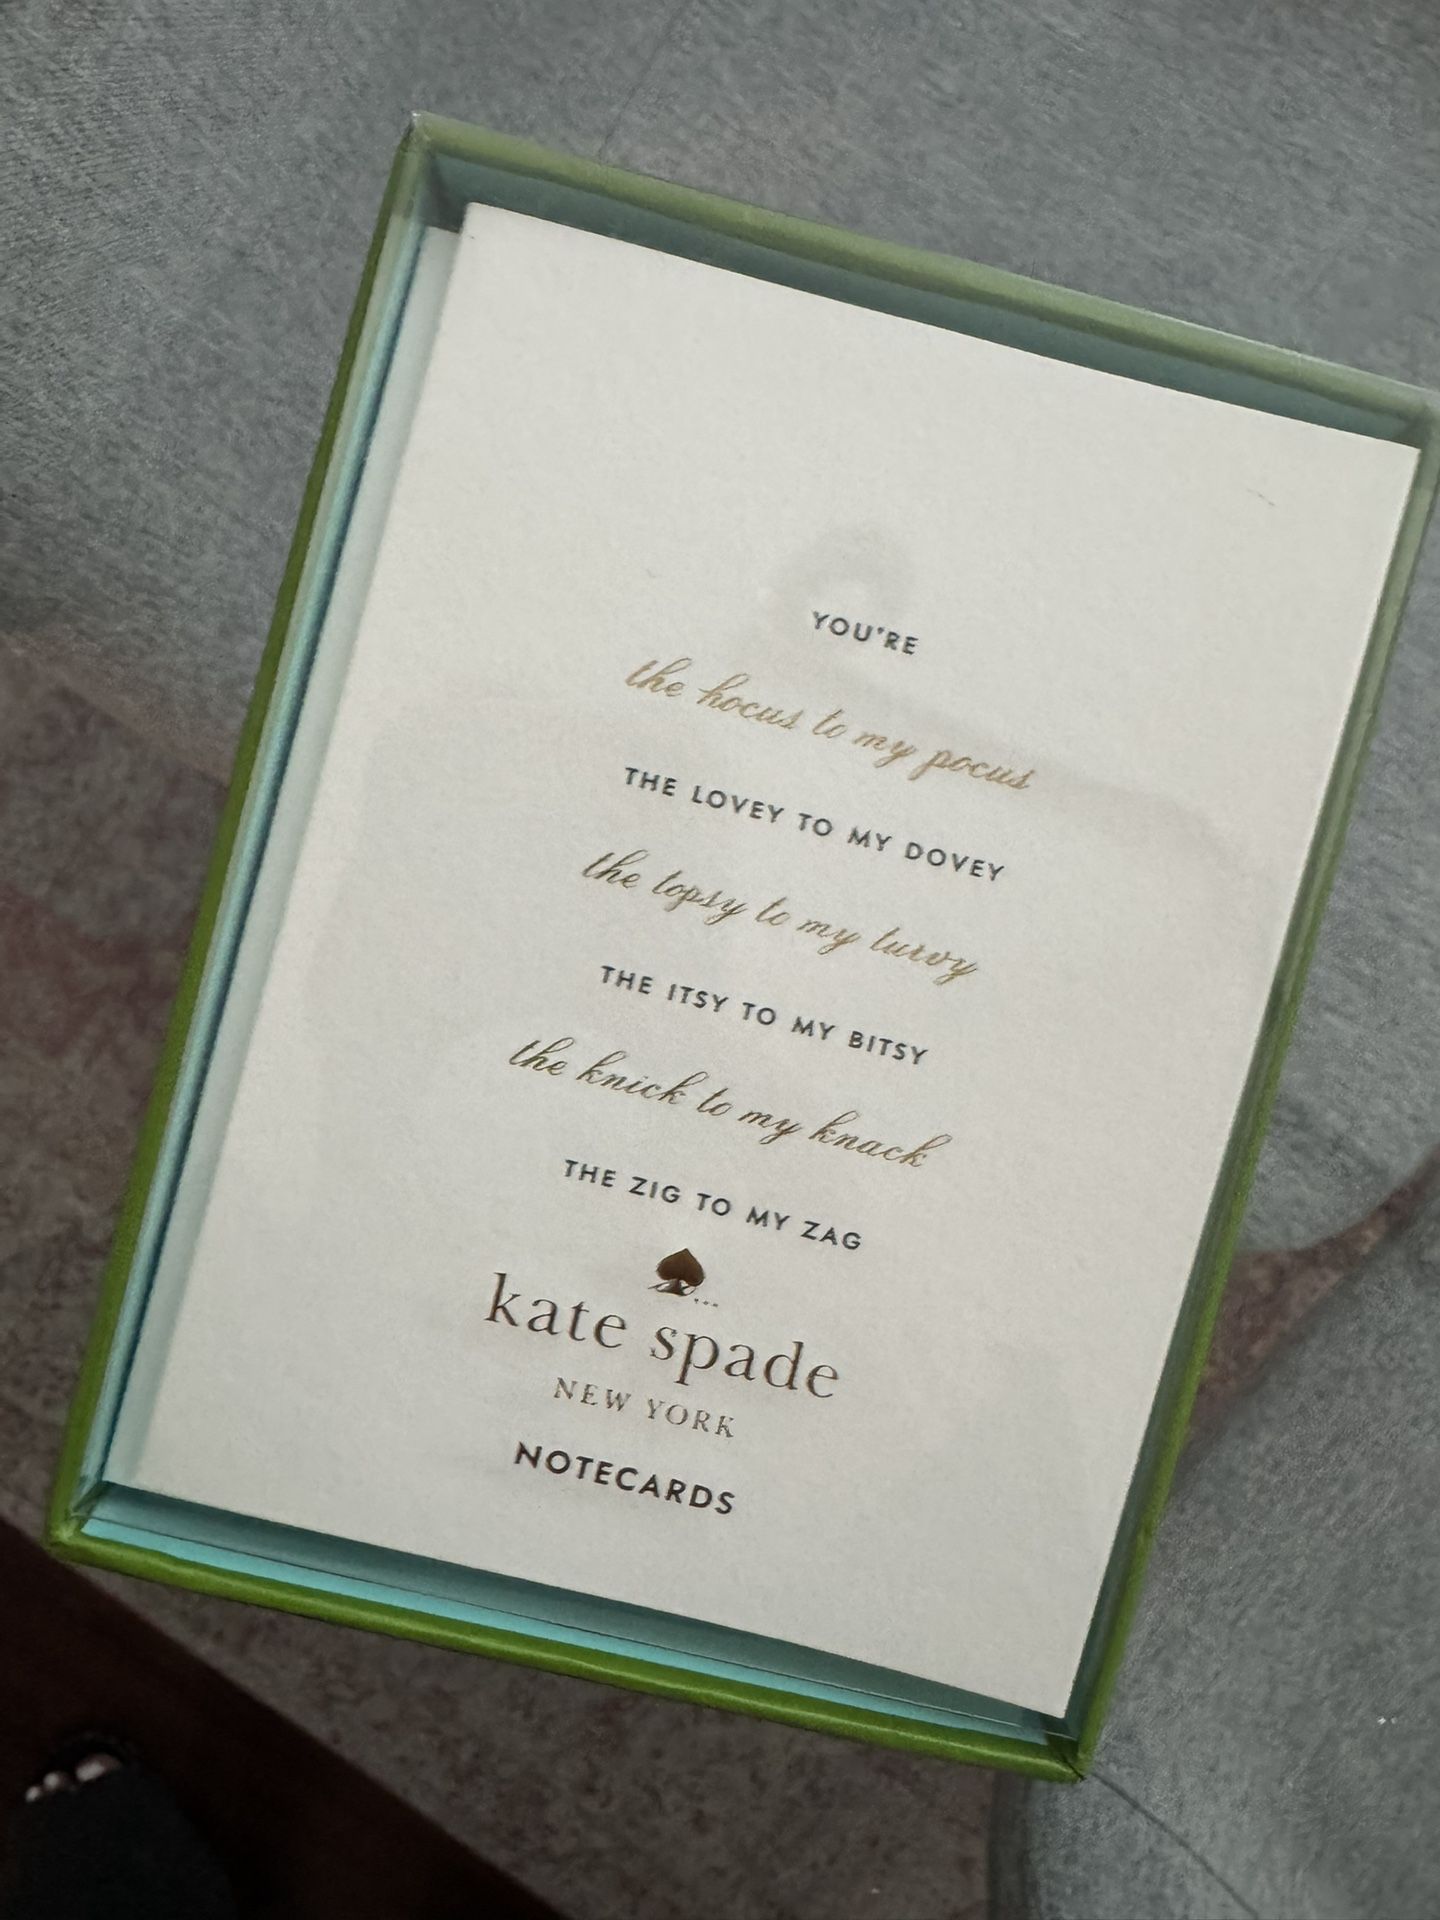 YOU'RE
the hocus to my pocus
THE LOVEY TO MY DOVEY
the topsy to my turvy
THE ITSY TO MY BITSY
the knick to my knack
THE ZIG TO MY ZAG
kate spade
NEW YORK
NOTECARDS